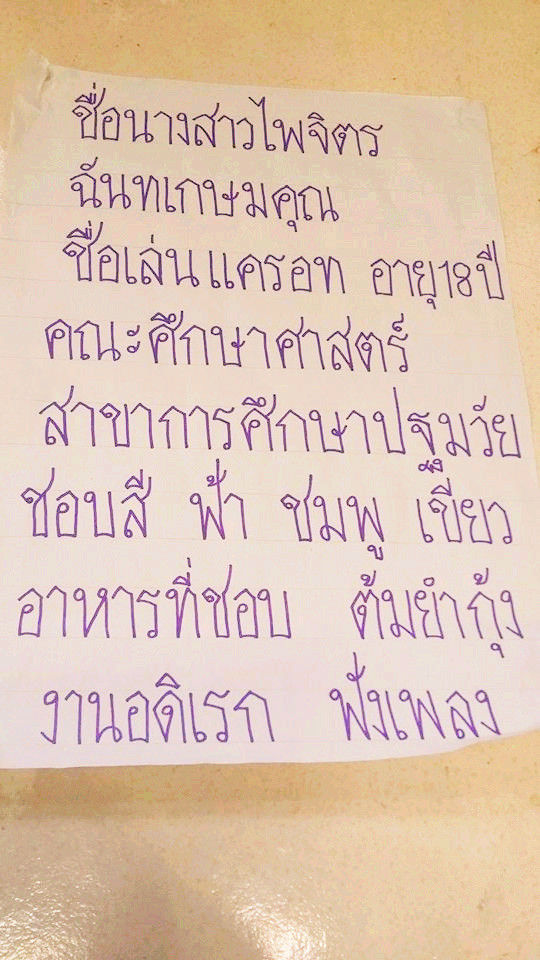 ชื่อนางสาวไพจิตร
ฉันทเกษมคุณ
ชื่อเล่นแครอท อายุ18ปี
คณะศึกษาศาสตร์
สาขาการศึกษาปฐมวัย
ชอบสี ฟ้า ชมพู เขียว
อาหารที่ชอบ ต้มยำกุ้ง
งานอดิเรก ฟังเพลง